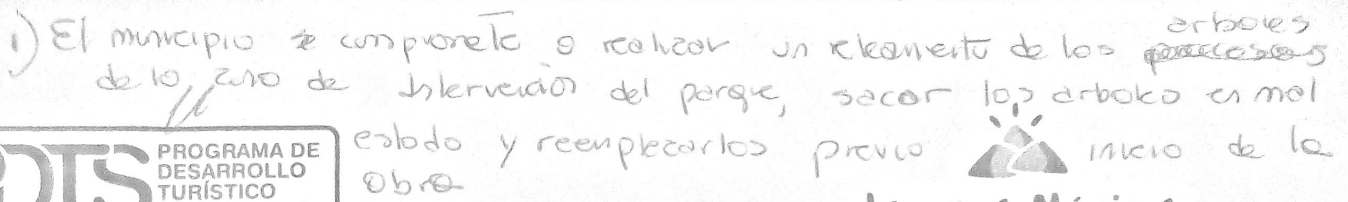 arboles
i) El municipio se compromete a realizar un relevamiento de los
de la zona de Intervención del parque, sacar los arboles en mal
estado y reemplazarlos previo inicio de la
obra
PROGRAMA DE
DESARROLLO
TURÍSTICO